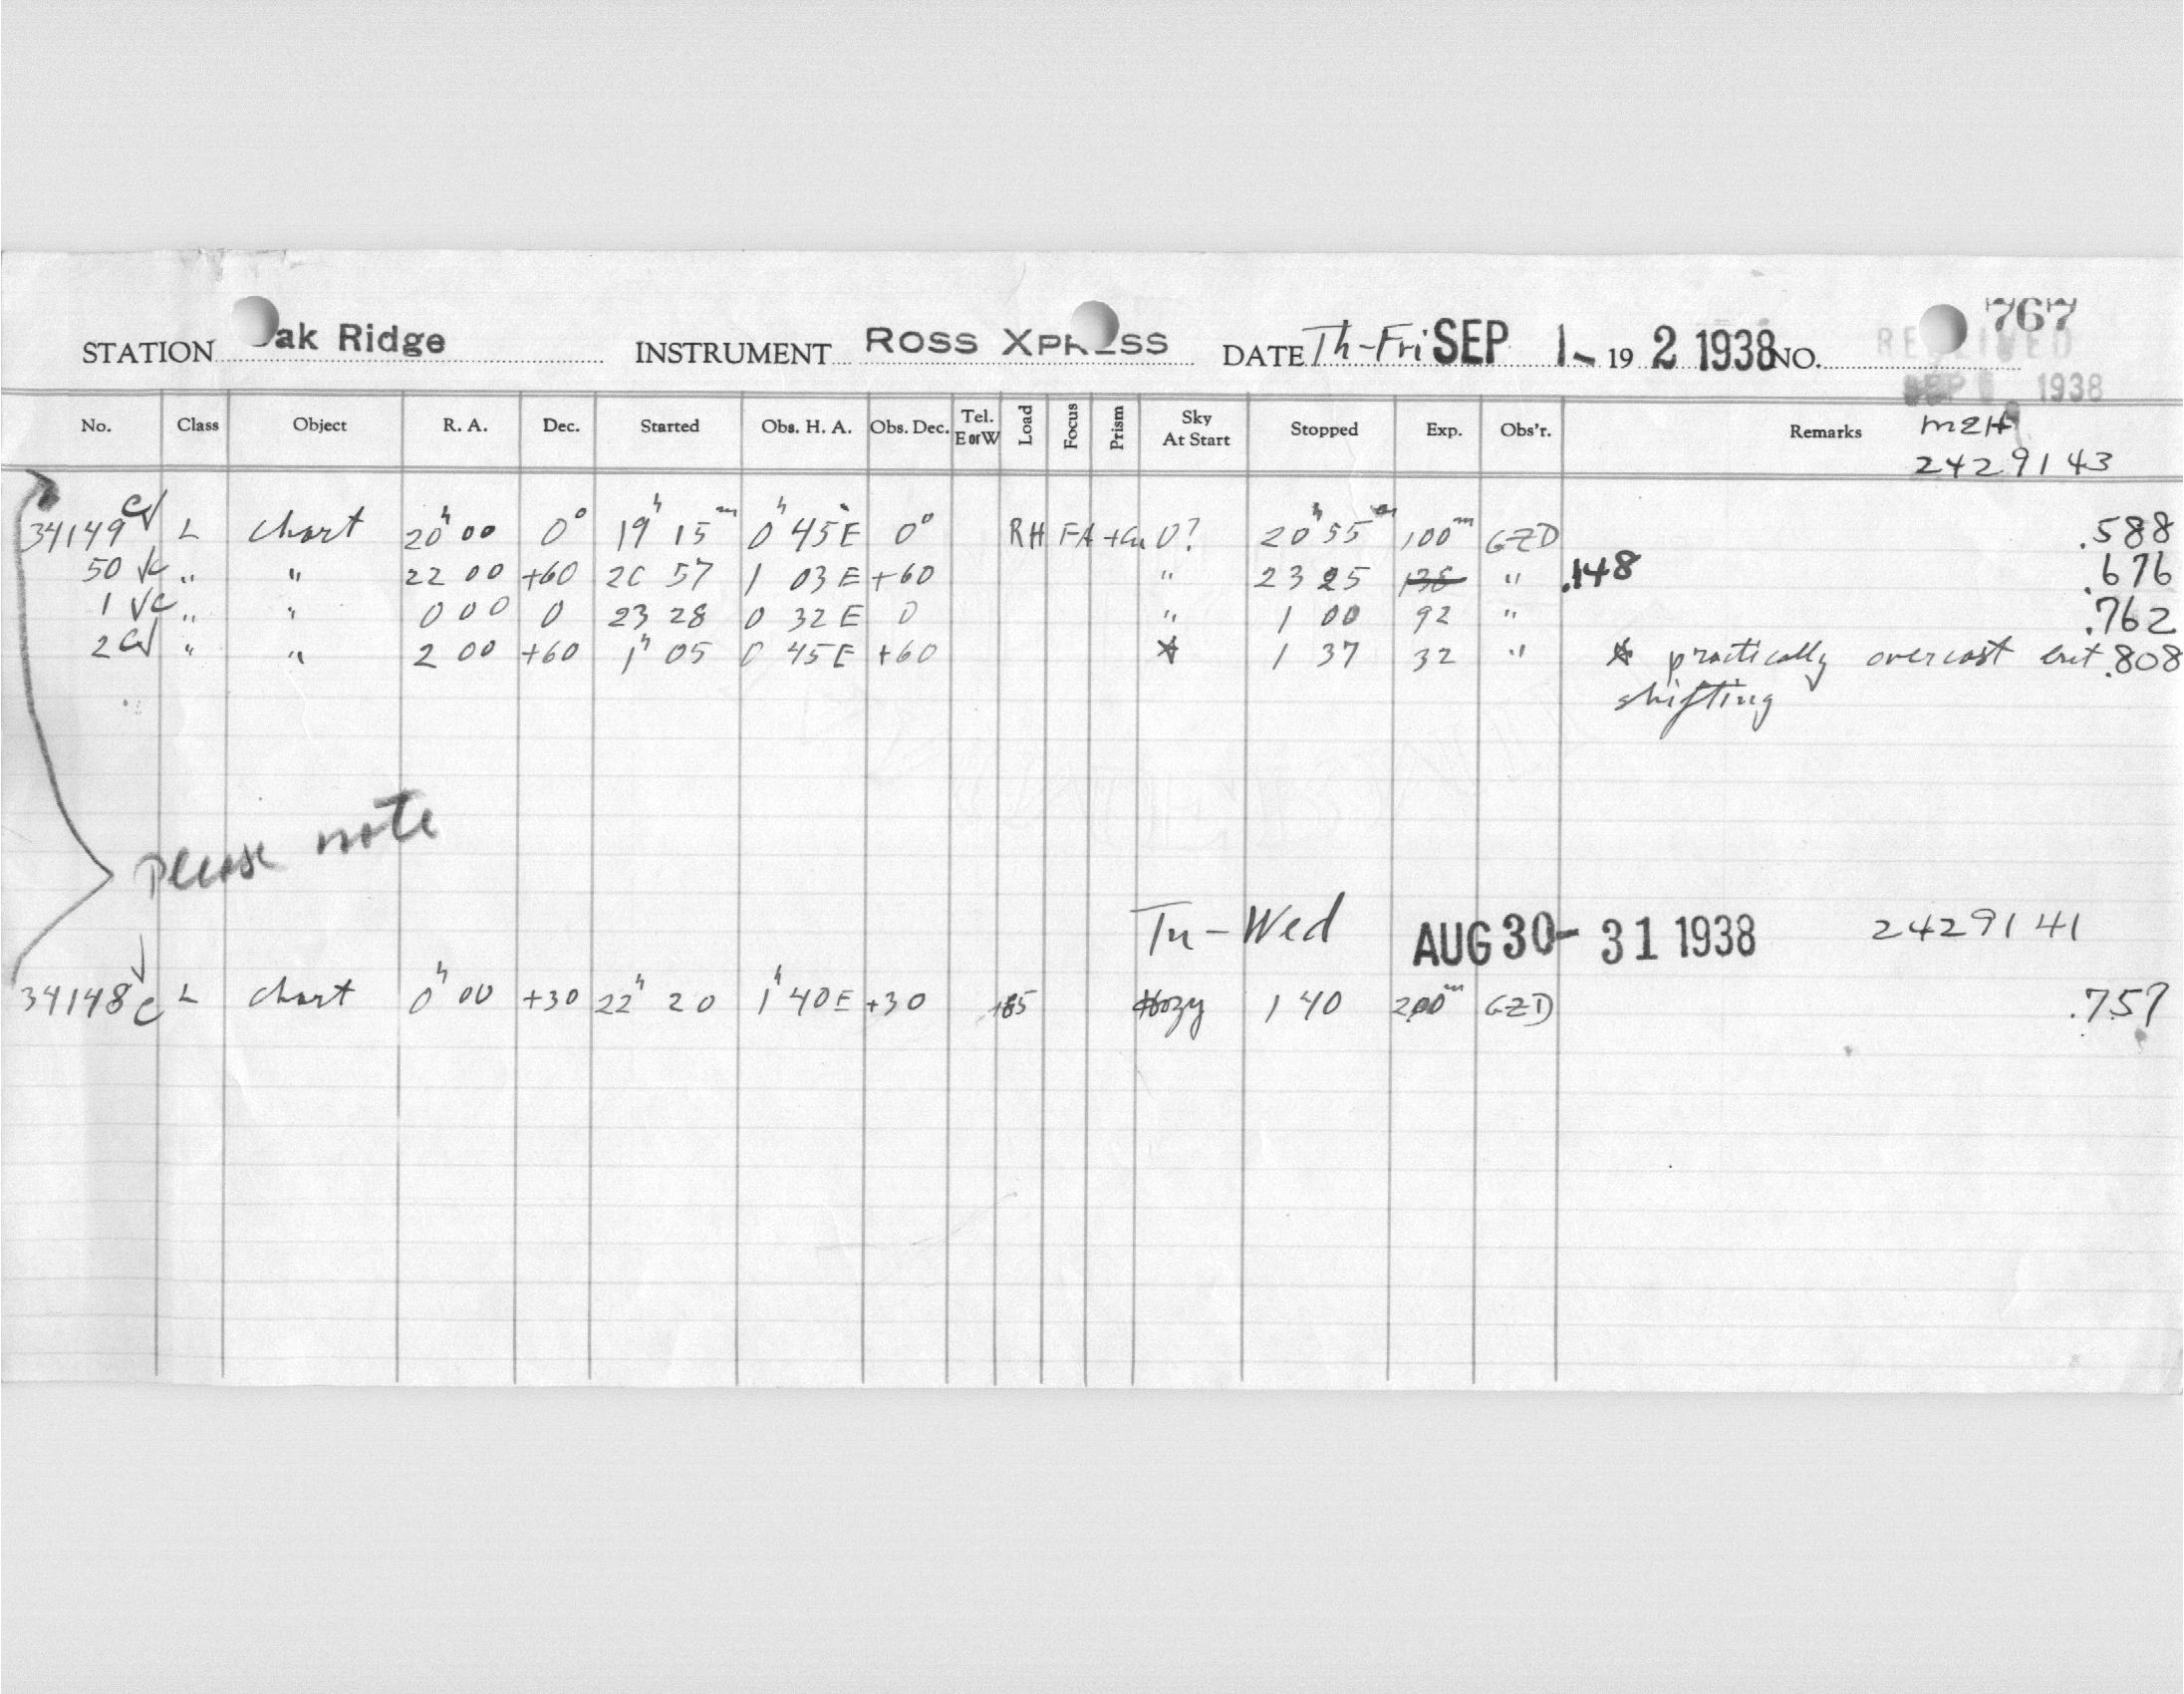 767
STATION Oak Ridge INSTRUMENT ROSS XPRESS DATE Th-Fri SEP 1- 19 2 1938 NO. RECEIVED
SEP 1938
No. Class Object R. A. Dec. Started Obs. H. A. Obs. Dec. Tel. E or W Load Focus Prism Sky At Start Stopped Exp. Obs'r. Remarks MZH
2429143
34149 L chart 20h 00 0° 19h 15m 0h 45E 0° RH FA 0? 20h 55m 100m GZD .588
50 √c " " 22 00 +60 20 57 1 03 E +60 " 23 25 138 " .148 .676
1 √c " " 0 00 0 23 28 0 32 E 0 " 1 00 92 " .762
2 c√ " " 2 00 +60 1h 05 0 45E +60 * 1 37 32 " * practically overcast but .808
shifting
Please note
Tu-Wed AUG 30-31 1938 2429141
34148 c L chart 0h 00 +30 22h 20 1h 40E +30 +85 Hazy 1 40 200m GZD .757